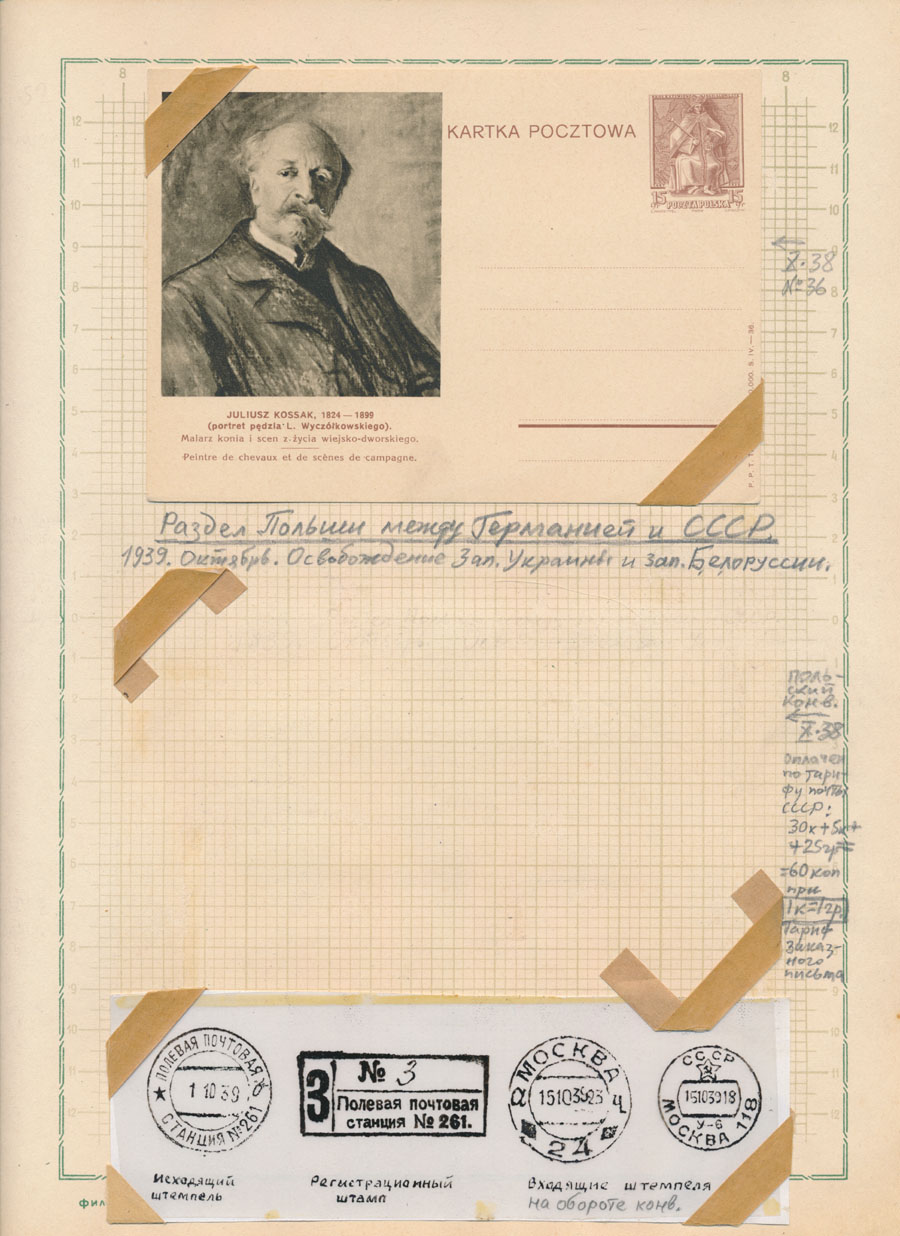 8
8
KARTKA POCZTOWA
15 POCZTA POLSKA 15
12
11
10
9
8
7
6
5
4
3
2
1
0
1
2
3
4
5
6
7
8
9
10
11
12
12
11
10
8
7
4
3
2
←
X.38
№36
JULIUSZ KOSSAK, 1824 — 1899
(portret pędzla L. Wyczółkowskiego).
Malarz konia i scen z życia wiejsko-dworskiego.
Peintre de chevaux et de scènes de campagne.
000. S. IV.—38.
P. P. T.
Раздел Польши между Германией и СССР.
1939. Октябрь. Освобождение Зап. Украины и Зап. Белоруссии.
Поль-
ский
конв.
←
X.38
Оплачен
по тари-
фу почты
СССР:
30к+5к+
+25гр=
=60коп
при
1к=1гр.
Тариф
заказ-
ного
письма
★ ПОЛЕВАЯ ПОЧТОВАЯ
1 10 39
СТАНЦИЯ №261
З
№ 3
Полевая почтовая
станция № 261.
МОСКВА
15103923 Ч
24
СССР
15103918
У-6
МОСКВА 118
Исходящий
штемпель
Регистрационный
штамп
Входящие штемпеля
на обороте конв.
фил